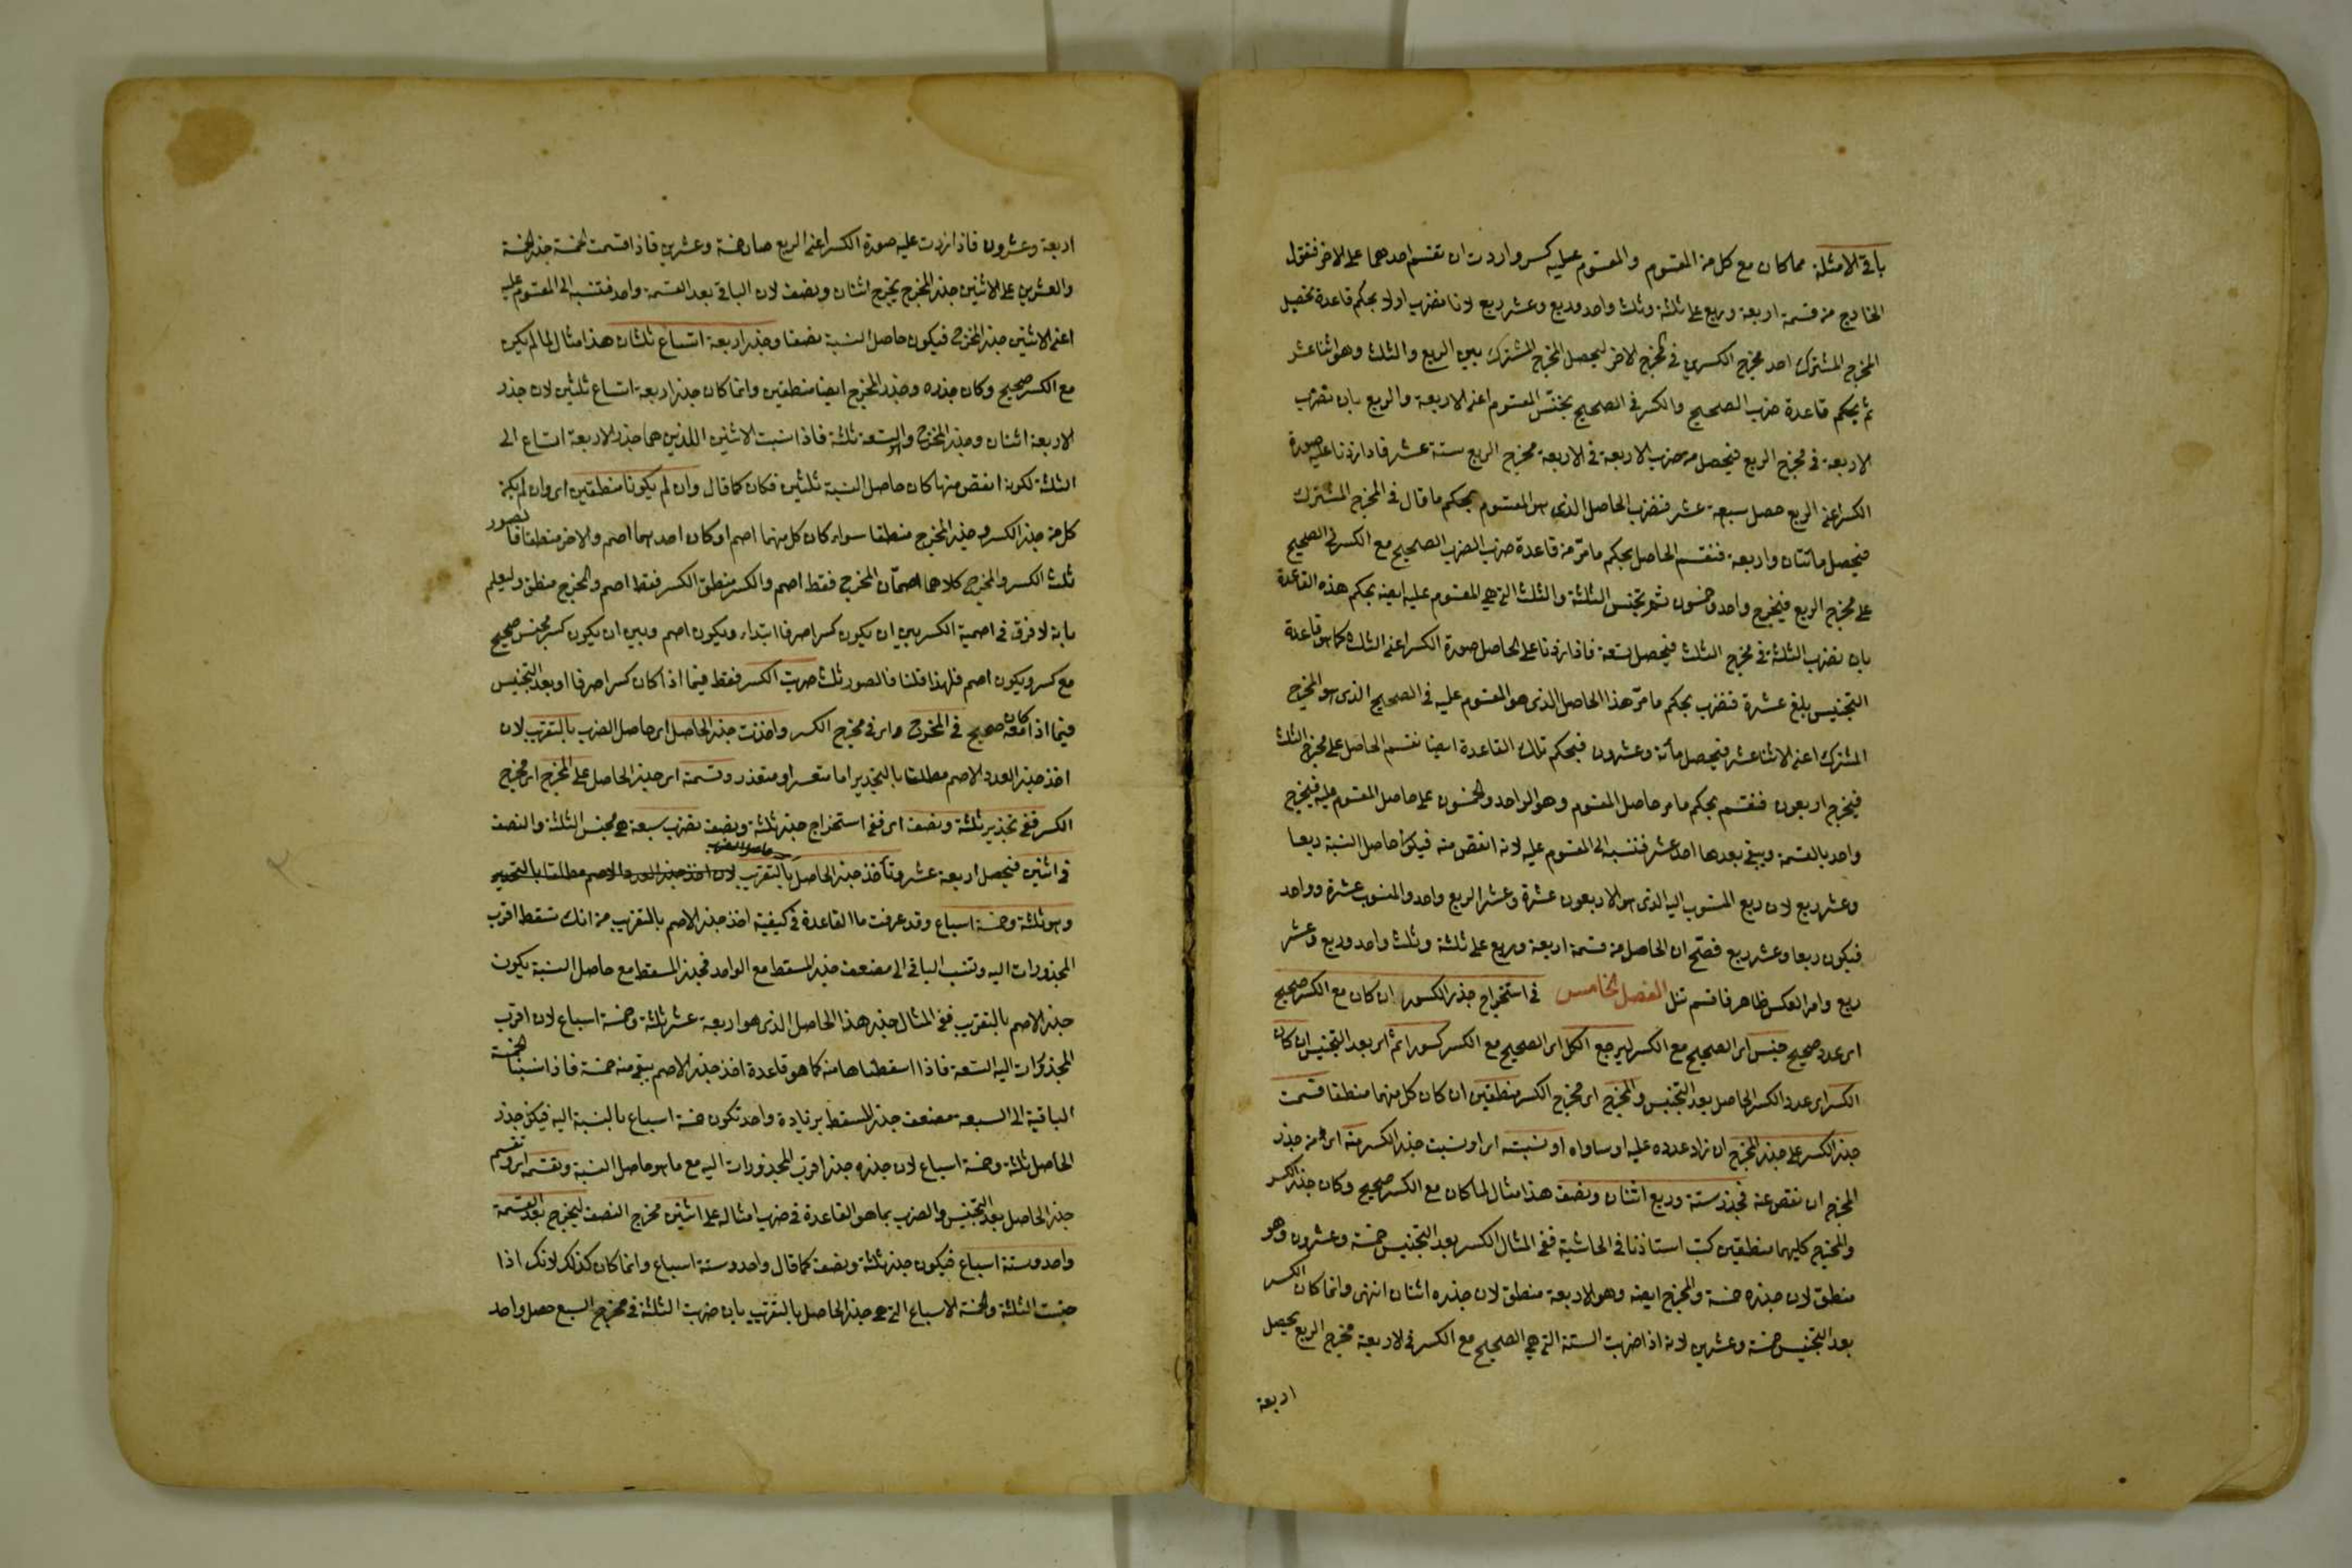 باقي الامثلة مما كان مع كل من المقسوم والمقسوم عليه كسر واردت ان تقسم احدهما على الاخر فتقول
الخارج من قسمة اربعة وربع على ثلثة وثلث واحد وربع وعشر ربع لانا نضرب اولا بحكم قاعدة تحصيل
المخرج المشترك احد مخرجي الكسرين في المخرج الاخر ليحصل المخرج المشترك بين الربع والثلث وهو اثنا عشر
ثم بحكم قاعدة ضرب الصحيح والكسر في الصحيح يجنس المقسوم اعني الاربعة والربع بان تضرب
الاربعة في مخرج الربع فيحصل من ضرب الاربعة في الاربعة مخرج الربع ستة عشر فاذا زدنا عليه صورة
الكسر اعني الربع حصل سبعة عشر فنضرب الحاصل الذي هو المقسوم بحكم ما قال في المخرج المشترك
فيحصل مائتان واربعة فنقسم الحاصل بحكم ما مرّ من قاعدة ضرب الضرب الصحيح مع الكسر في الصحيح
على مخرج الربع فيخرج واحد وخمسون ثم تجنس الثلثة والثلث التي هي المقسوم عليه ايضه بحكم هذه القاعدة
بان نضرب الثلثة في مخرج الثلث فيحصل تسعة فاذا زدنا على الحاصل صورة الكسر اعني الثلث كما هو قاعدة
التجنيس بلغ عشرة فنضرب بحكم ما مرّ هذا الحاصل الذي هو المقسوم عليه في الصحيح الذي هو المخرج
المشترك اعني الاثنا عشر فيحصل مأئة وعشرون فبحكم تلك القاعدة ايضا نقسم الحاصل على مخرج الثلث
فيخرج اربعون فنقسم بحكم ما مر حاصل المقسوم وهو الواحد والخمسون على حاصل المقسوم عليه فيخرج
واحد بالقسمة ويبقى بعدها احد عشر فننسبه الى المقسوم عليه لانه انقص منه فيكون حاصل النسبة ربعا
وعشر ربع لان ربع المنسوب اليه الذي هو الاربعون عشرة وعشر الربع واحد والمنسوب عشرة وواحد
فيكون ربعا وعشر ربع فصحّ ان الحاصل من قسمة اربعة وربع على ثلثة وثلث واحد وربع وعشر
ربع وامر العكس ظاهر فاقسم تنل الفصل الخامس في استخراج جذر الكسور ان كان مع الكسر صحيح
اي عدد صحيح جنس اي الصحيح مع الكسر ليرجع الكل اي الصحيح مع الكسر كسورا ثم اي بعد التجنيس ان كان
الكسر اي عدد الكسر الحاصل بعد التجنيس والمخرج اي مخرج الكسر منطقين ان كان كل منهما منطقا قسمت
جذر الكسر على جذر المخرج ان زاد عدده عليه او ساواه او نسبته اي او نسبت جذر الكسر منه اي من جذر
المخرج ان نقص عنه فجذر ستة وربع اثنان ونصف هذا مثال لما كان مع الكسر صحيح وكان جذر الكسر
والمخرج كليهما منطقين كتب استاذنا في الحاشية ففي المثال الكسر بعد التجنيس خمسة وعشرون وهو
منطق لان جذره خمسة والمخرج ايضه وهو الاربعة منطق لان جذره اثنان انتهى وانما كان الكسر
بعد التجنيس خمسة وعشرين لانه اذا ضربت الستة التي هي الصحيح مع الكسر في الاربعة مخرج الربع يحصل
اربعة
اربعة وعشرون فاذا زدت عليه صورة الكسر اعني الربع صار خمسة وعشرين فاذا قسمت الخمسة جذر الخمسة
والعشرين على الاثنين جذر المخرج يخرج اثنان ونصف لان الباقي بعد القسمة واحد فتنسبه الى المقسوم عليه
اعني الاثنين جذر المخرج فيكون حاصل النسبة نصفا وجذر اربعة اتساع ثلثان هذا مثال لما لم يكن
مع الكسر صحيح وكان جذره وجذر المخرج ايضا منطقين وانما كان جذر اربعة اتساع ثلثين لان جذر
الاربعة اثنان وجذر المخرج والتسعة ثلثة فاذا نسبت الاثنين اللذين هما جذر الاربعة اتساع الى
الثلثة لكونه انقص منها كان حاصل النسبة ثلثين فكان كما قال وان لم يكونا منطقين اي وان لم يكن
كل من جذر الكسر وجذر المخرج منطقا سواء كان كل منهما اصم او كان احدهما اصم والاخر منطقا فالصور
ثلث الكسر والمخرج كلاهما اصمّان المخرج فقط اصم والكسر منطق الكسر فقط اصم والمخرج منطق وليعلم
بانه لا فرق في اصمية الكسر بين ان يكون كسرا صرفا ابتداء ويكون اصم وبين ان يكون كسر مجنس صحيح
مع كسر ويكون اصم فلهذا قلنا فالصور ثلث ضربت الكسر فقط فيما اذا كان كسرا صرفا او بعد التجنيس
فيما اذا كان معه صحيح في المخرج اي في مخرج الكسر واخذت جذر الحاصل اي حاصل الضرب بالتقريب لان
اخذ جذر العدد الاصم مطلقا بالتجذير اما متعسر او متعذر وقسمته اي جذر الحاصل على المخرج اي مخرج
الكسر ففي تجذير ثلثة ونصف اي ففي استخراج جذر ثلثة ونصف نضرب سبعة هي مجنس الثلثة والنصف
حاصل الضرب
في اثنين فيحصل اربعة عشر وتأخذ جذر الحاصل بالتقريب لان اخذ جذر العدد الاصم مطلقا بالتجذير
وهو ثلثة وخمسة اسباع وقد عرفت ما القاعدة في كيفية اخذ جذر الاصم بالتقريب من انك تسقط اقرب
المجذورات اليه وتنسب الباقي الى مضعف جذر المسقط مع الواحد فجذر المسقط مع حاصل النسبة يكون
جذر الاصم بالتقريب ففي المثال جذر هذا الحاصل الذي هو اربعة عشر ثلثة وخمسة اسباع لان اقرب
المجذورات اليه التسعة فاذا اسقطناها منه كما هو قاعدة اخذ جذر الاصم يبقى منه خمسة فاذا نسبنا الخمسة
الباقية الى السبعة مضعف جذر المسقط بزيادة واحد تكون خمسة اسباع بالنسبة اليه فيكون جذر
الحاصل ثلثة وخمسة اسباع لان جذره جذر اقرب المجذورات اليه مع ما هو حاصل النسبة وتقسمه اي وتقسم
جذر الحاصل بعد التجنيس والضرب بما هو القاعدة في ضرب امثاله على اثنين مخرج النصف ليخرج بعد القسمة
واحد وستة اسباع فيكون جذر ثلثة ونصف كما قال واحد وستة اسباع وانما كان كذلك لانك اذا
جنست الثلثة والخمسة الاسباع التي هي جذر الحاصل بالتقريب بان ضربت الثلثة في مخرج السبع حصل واحد